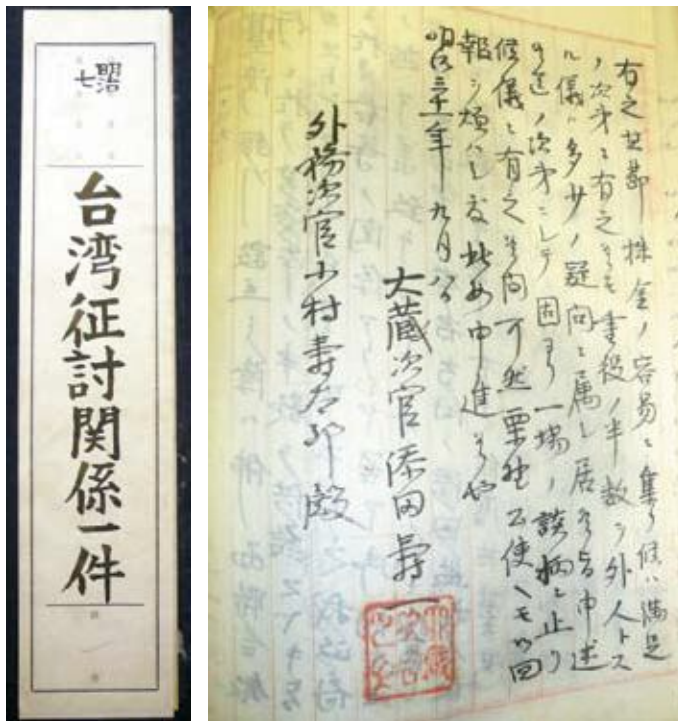 明治七
台湾征討関係一件
株金ノ容易ニ集リ候ハ満足
ノ次第ニ有之候モ重役ノ半数ヲ外人トス
ル儀ハ多少ノ疑問ニ属シ居候旨申述
候迄ノ次第ニシテ固ヨリ一場ノ談柄ニ止リ
候儀ニ有之候間可然栗野公使ヘモ御回
報ヲ煩ハシ度此申進候也
明治三十一年九月八日
大蔵次官添田寿一
外務次官小村寿太郎殿